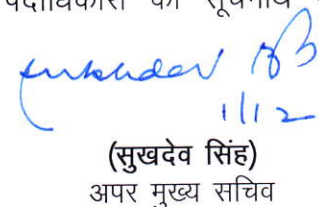 पदाधिकारी को सूचनार्थ
Sukhdev
1/12
(सुखदेव सिंह)
अपर मुख्य सचिव